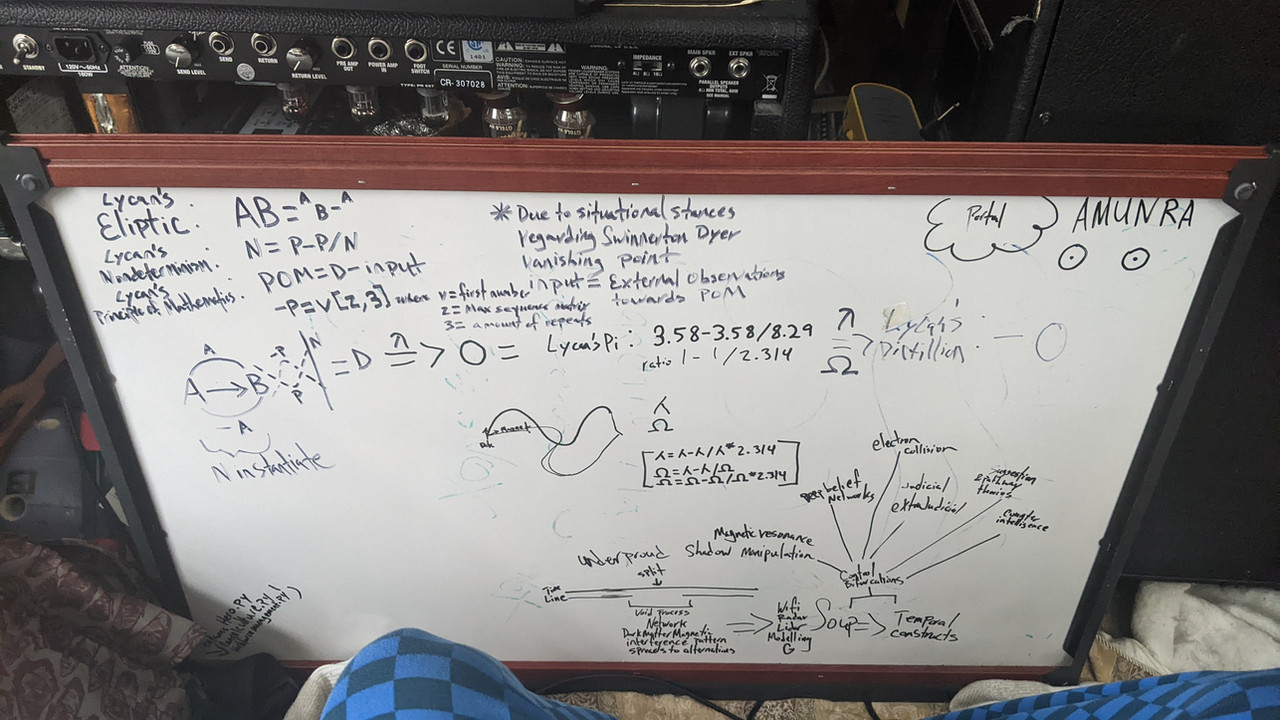 STANDBY
120V~60Hz
180W
ATTENTION
SEND LEVEL
SEND
RETURN
RETURN LEVEL
PRE AMP
OUT
POWER AMP
IN
FOOT
SWITCH
CE
SERIAL NUMBER
CR-307028
CAUTION:
WARNING:
IMPEDANCE
MAIN SPKR
EXT SPKR
PARALLEL SPEAKER
OUTPUTS
Lycan's
Eliptic.
AB=ᴬB-ᴬ
Lycan's
Nondeterminism.
N=P-P/N
Lycan's
Principle of Mathematics.
POM=D-input
-P=V[2,3] where v=first number
2=Max sequence matrix
3= amount of repeats
* Due to situational stances
regarding Swinnerton Dyer
Vanishing point
input= External Observations
towards POM
Portal
AMUNRA
A
A→B
-P
P
N
=D
λ
=> O =
Lycan's Pi: 3.58-3.58/8.29
ratio 1-1/2.314
λ
=>
Ω
Lycan's
Distillion.
- O
-A
N instantiate
λ
Ω
λ=λ-λ/λ*2.314
Ω=λ-λ/Ω
Ω=Ω-Ω/Ω*2.314
electron
collision
Deep belief
Networks
Judicial
extraJudicial
Counter
intelligence
Magnetic resonance
Shadow Manipulation
Control
Bifurcations
Under proud
split
Time
Line
Void process
Network
Dark Matter Magnetic
interference pattern
spreads to alternatives
=>
Wifi
Radar
Lidar
Modelling
G
Soup=>
Temporal
constructs